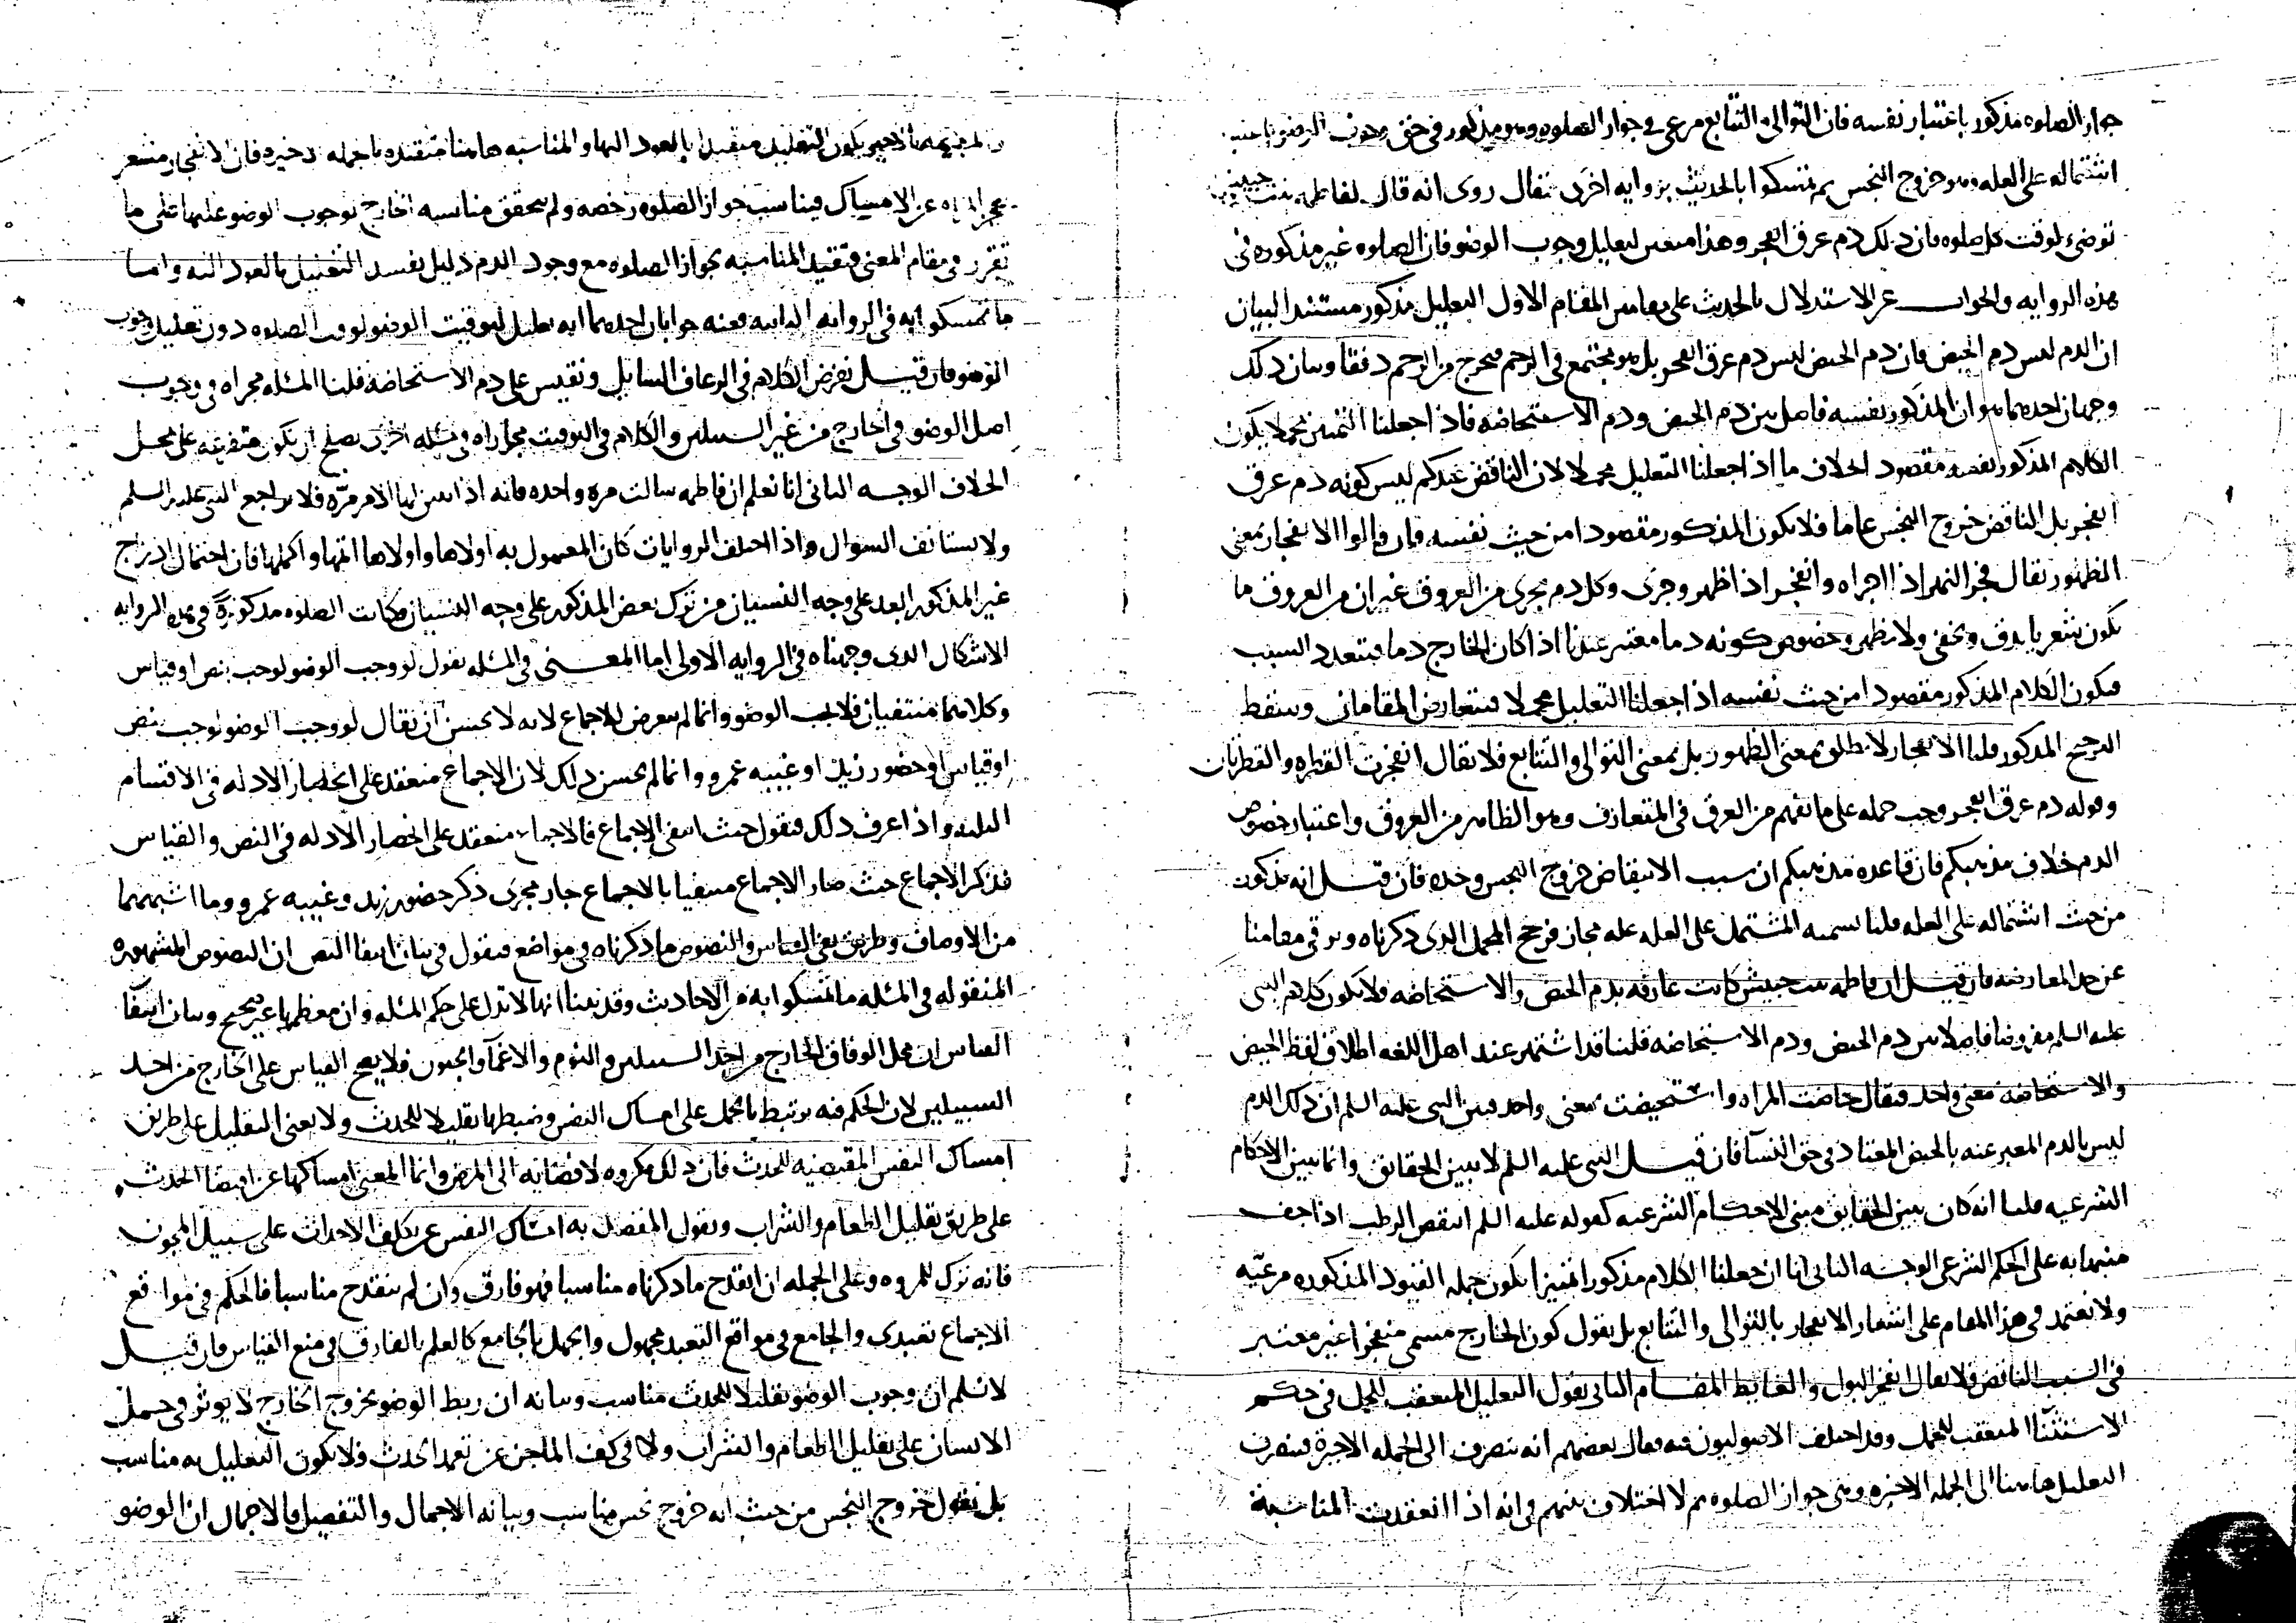 جواز الصلوه مذكور باعتبار نفسه فان التوالي والتتابع مرعي في جواز الصلوه وهو مذكور في حق وجوب الوضو باعتبار
اشتماله على العله وهو خروج النجس ثم تمسكوا بالحديث بروايه اخرى فقال روى انه قال لفاطمه بنت حبيش
توضي لوقت كل صلوه فان ذلك دم عرق انفجر وهذا متعين لتعليل وجوب الوضو فان الصلوه غير مذكوره في
هذه الروايه والجواب عن الاستدلال بالحديث على مقامين المقام الاول التعليل مذكور مستند البيان
ان الدم ليس دم الحيض فان دم الحيض ليس دم عرق انفجر بل هو مجتمع في الرحم فيخرج من الرحم دفقا وبيان ذلك
وجهان احدهما هو ان المذكور بنفسه فاصل بين دم الحيض ودم الاستحاضه فاذا جعلنا التمييز محملا يكون
الكلام المذكور بنفسه مقصود الخلاف ما اذا جعلنا التعليل محملا لان الناقض عندكم ليس كونه دم عرق
انفجر بل الناقض خروج النجس عاما فلا يكون المذكور مقصودا من حيث نفسه فان قالوا الانفجار بمعنى
الظهور يقال فجر النهر اذا اجراه وانفجر اذا ظهر وجرى وكل دم يجرى من العروق غير ان من العروق ما
يكون شعريا يدق ويخفى ولا يظهر وخصوص كونه دما معتبر عندنا اذا كان الخارج دما فيتعدد السبب
فيكون الكلام المذكور مقصودا من حيث نفسه اذا جعلنا التعليل محملا فيتعارض المقامان ويسقط
الترجيح المذكور قلنا الانفجار لا يطلق بمعنى الظهور بل بمعنى التوالي والتتابع فلا يقال انفجرت القطره والقطرتان
وقوله دم عرق انفجر وجب حمله على ما يفهم من العرق في المتعارف وهو الظاهر من العروق واعتبار خصوص
الدم خلاف مذهبكم فان قاعده مذهبكم ان سبب الانتقاض خروج النجس وحده فان قيل انه مذكور
من حيث اشتماله على العله قلنا تسميه المشتمل على العله عله مجاز فرجح المحمل الذي ذكرناه وبقى مقامنا
عن حد المعارضه فان قيل ان فاطمه بنت حبيش كانت عارفه بدم الحيض والاستحاضه فلا يكون كلام النبي
عليه السلم مفروضا فاصلا بين دم الحيض ودم الاستحاضه قلنا قد اشتهر عند اهل اللغه اطلاق لفظ الحيض
والاستحاضه بمعنى واحد فيقال حاضت المراه واستحيضت بمعنى واحد فبين النبي عليه السلم ان ذلك الدم
ليس بالدم المعبر عنه بالحيض المعتاد في حق النسآ فان قيل النبي عليه السلم لا يبين الحقايق وانما يبين الاحكام
الشرعيه قلنا انه كان يبين الحقايق مبنى الاحكام الشرعيه كقوله عليه السلم اينقص الرطب اذا جف
منبها به على الحكم الشرعي الوجه الثاني انا ان جعلنا الكلام مذكورا تمييزا يكون جمله القيود المذكوره مرعيه
ولا نعتمد في هذا المقام على اشعار الانفجار بالتوالي والتتابع بل نقول كون الخارج مسمى منفجرا غير معتبر
في السبب الناقض فلا يقال انفجر البول والغايط المقام الثاني نقول التعليل المتعقب للجمل في حكم
الاستثنآ المتعقب للجمل وقد اختلف الاصوليون فيه فقال بعضهم انه ينصرف الى الجمله الاخيرة فينصرف
التعليل هاهنا الى الجمله الاخيره وهي جواز الصلوه ثم لا اختلاف بينهم في انه اذا انعقدت المناسبة
بالاخير يكون التعليل متقيدا بالعود اليها والمناسبه هاهنا متقيده بالجمله الاخيره فان الانفجار مشعر
بعجز المراه عن الامساك فيناسب جواز الصلوه رخصه ولم يتحقق مناسبه الخارج لوجوب الوضو عليها على ما
تقرر في مقام المعنى وتقييد المناسبه بجواز الصلوه مع وجود الدم دليل يفسد التعليل بالعود اليه واما
ما تمسكوا به في الروايه الثانيه فعنه جوابان احدهما انه تعليل لتوقيت الوضو لوقت الصلوه دون تعليل وجوب
الوضو فان قيل نفرض الكلام في الرعاف السايل ونقيس على دم الاستحاضه قلنا المسله مجراه في وجوب
اصل الوضو في الخارج من غير السبيلين والكلام في التوقيت مجاراه في مسله اخرى يصلح ان يكون متفرعه على محل
الخلاف الوجه الثاني انا نعلم ان فاطمه سالت مره واحده فانه اذا تبين لها الامر مرّه فلا تراجع النبي عليه السلم
ولا يستانف السوال واذا اختلف الروايات كان المعمول به اولاها واولاها اتمها واكملها فان احتمال ادراج
غير المذكور ابعد على وجه النسيان من ترك بعض المذكور على وجه النسيان وكانت الصلوه مذكورة في هذه الروايه
الاشكال الذي وجهناه في الروايه الاولى اما المعنى في المسله نقول لو وجب الوضو لوجب بنص او قياس
وكلاهما منتفيان فلا يجب الوضو وانما لم نتعرض للاجماع لانه لا يحسن ان يقال لو وجب الوضو لوجب بنص
او قياس او حضور زيد او غيبه عمرو وانما لم يحسن ذلك لان الاجماع منعقد على انحصار الادله في الاقسام
الثلثه واذا عرف ذلك فنقول حيث انتفى الاجماع فالاجماع منعقد على انحصار الادله في النص والقياس
فذكر الاجماع حيث صار الاجماع منتفيا بالاجماع جار مجرى ذكر حضور زيد وغيبه عمرو وما اشبههما
من الاوصاف وطريق نفي القياس والنصوص ما ذكرناه في مواضع فنقول في بيان انتفا النص ان النصوص المشهوره
المنقوله في المسله ما تمسكوا به من الاحاديث وقد بينا انها لا تدل على حكم المسله وان معظمها غير صحيح وبيان انتفآ
القياس ان محل الوفاق الخارج من احد السبيلين والنوم والاغمآ والجنون فلا يصح القياس على الخارج من احد
السبيلين لان الحكم فيه يرتبط بالحمل على امساك النفس وضبطها تقليلا للحدث ولا يعنى التقليل على طريق
امساك النفس المقتضيه للحدث فان ذلك مكروه لافضايه الى المرض وانما المعنى امساكها عن اقتضا الحدث
على طريق تقليل الطعام والشراب ونقول المفصل به امساك النفس عن تكلف الاحداث على سبيل المجون
فانه ترك للمروه وعلى الجمله ان انقدح ما ذكرناه مناسبا فهو فارق وان لم ينقدح مناسبا فالحكم في مواقع
الاجماع تعبدى والجامع في مواقع التعبد مجهول والجهل بالجامع كالعلم بالفارق في منع القياس فان قيل
لا نسلم ان وجوب الوضو تقليلا للحدث مناسب وبيانه ان ربط الوضو بخروج الخارج لا يوثر في حمل
الانسان على تقليل الطعام والشراب ولا في كف الماجن عن تعمد الحدث فلا يكون التعليل به مناسب
بل نقول خروج النجس من حيث انه خروج نجس مناسب وبيانه الاجمال والتفصيل فالاجمال ان الوضو